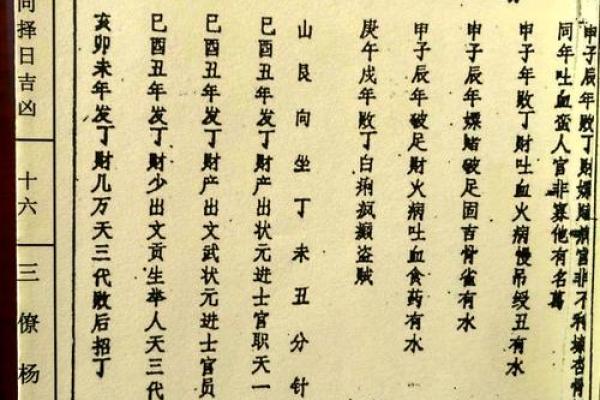 甲子辰年败丁财嫖赌病官非不利
同年吐血蛮人官非寡他有名葛
甲子年败丁财吐血火病慢吊绶丑有水
甲子辰年嫖赌破足固吉骨雀有水
甲子辰年破足财火病吐血食药有水
庚午戌年败丁白痢疯癫盗贼
山艮向坐丁未丑分针
巳酉丑年发丁财产出状元进士官职天一
巳酉丑年发丁财产出文武状元进士官员
巳酉丑年发丁财少出文贡生举人天三代
亥卯未年发丁财几万天三代败后招丁
向择日吉凶
十六
三僚杨